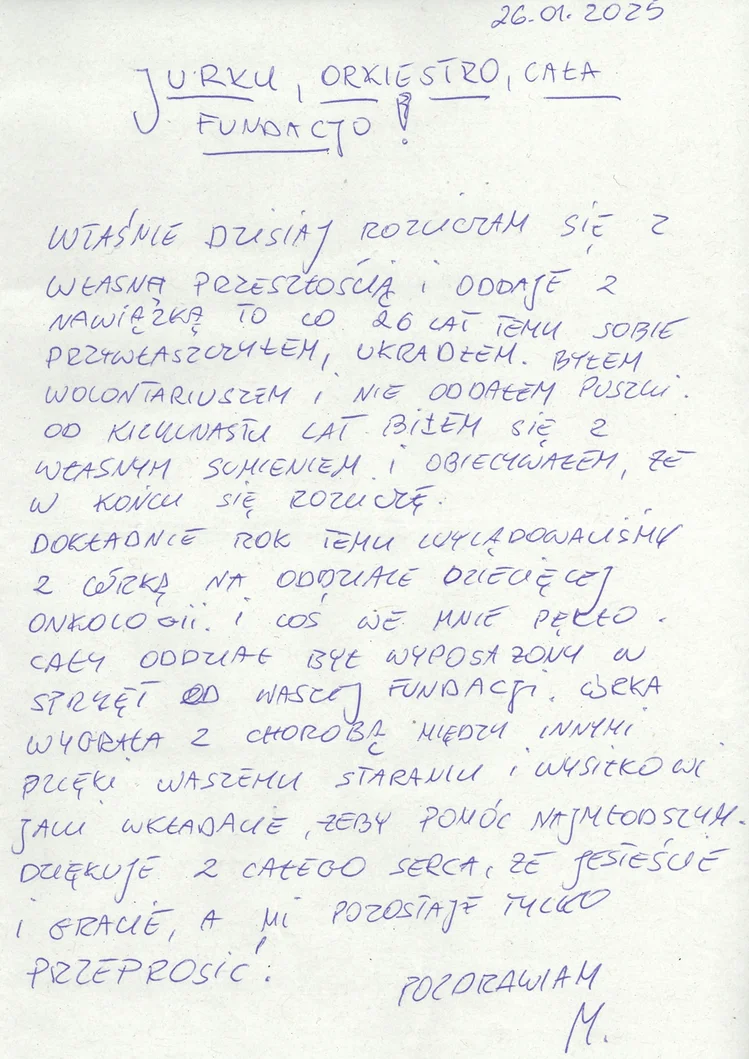 26.01.2025
JURKU, ORKIESTRO, CAŁA
FUNDACJO!
WŁAŚNIE DZISIAJ ROZLICZAM SIĘ Z
WŁASNĄ PRZESZŁOŚCIĄ i ODDAJĘ Z
NAWIĄZKĄ TO CO 26 LAT TEMU SOBIE
PRZYWŁASZCZYŁEM, UKRADŁEM. BYŁEM
WOLONTARIUSZEM i NIE ODDAŁEM PUSZKI.
OD KILKUNASTU LAT BIŁEM SIĘ Z
WŁASNYM SUMIENIEM i OBIECYWAŁEM, ŻE
W KOŃCU SIĘ ROZLICZĘ.
DOKŁADNIE ROK TEMU WYLĄDOWALIŚMY
Z CÓRKĄ NA ODDZIALE DZIECIĘCEJ
ONKOLOGII. i COŚ WE MNIE PĘKŁO.
CAŁY ODDZIAŁ BYŁ WYPOSAŻONY W
SPRZĘT OD WASZEJ FUNDACJI. CÓRKA
WYGRAŁA Z CHOROBĄ MIĘDZY INNYMI
DZIĘKI WASZEMU STARANIU i WYSIŁKOWI
JAKI WKŁADACIE, ŻEBY POMÓC NAJMŁODSZYM.
DZIĘKUJĘ Z CAŁEGO SERCA, ŻE JESTEŚCIE
i GRACIE, A MI POZOSTAJE TYLKO
PRZEPROSIĆ!
POZDRAWIAM
M.